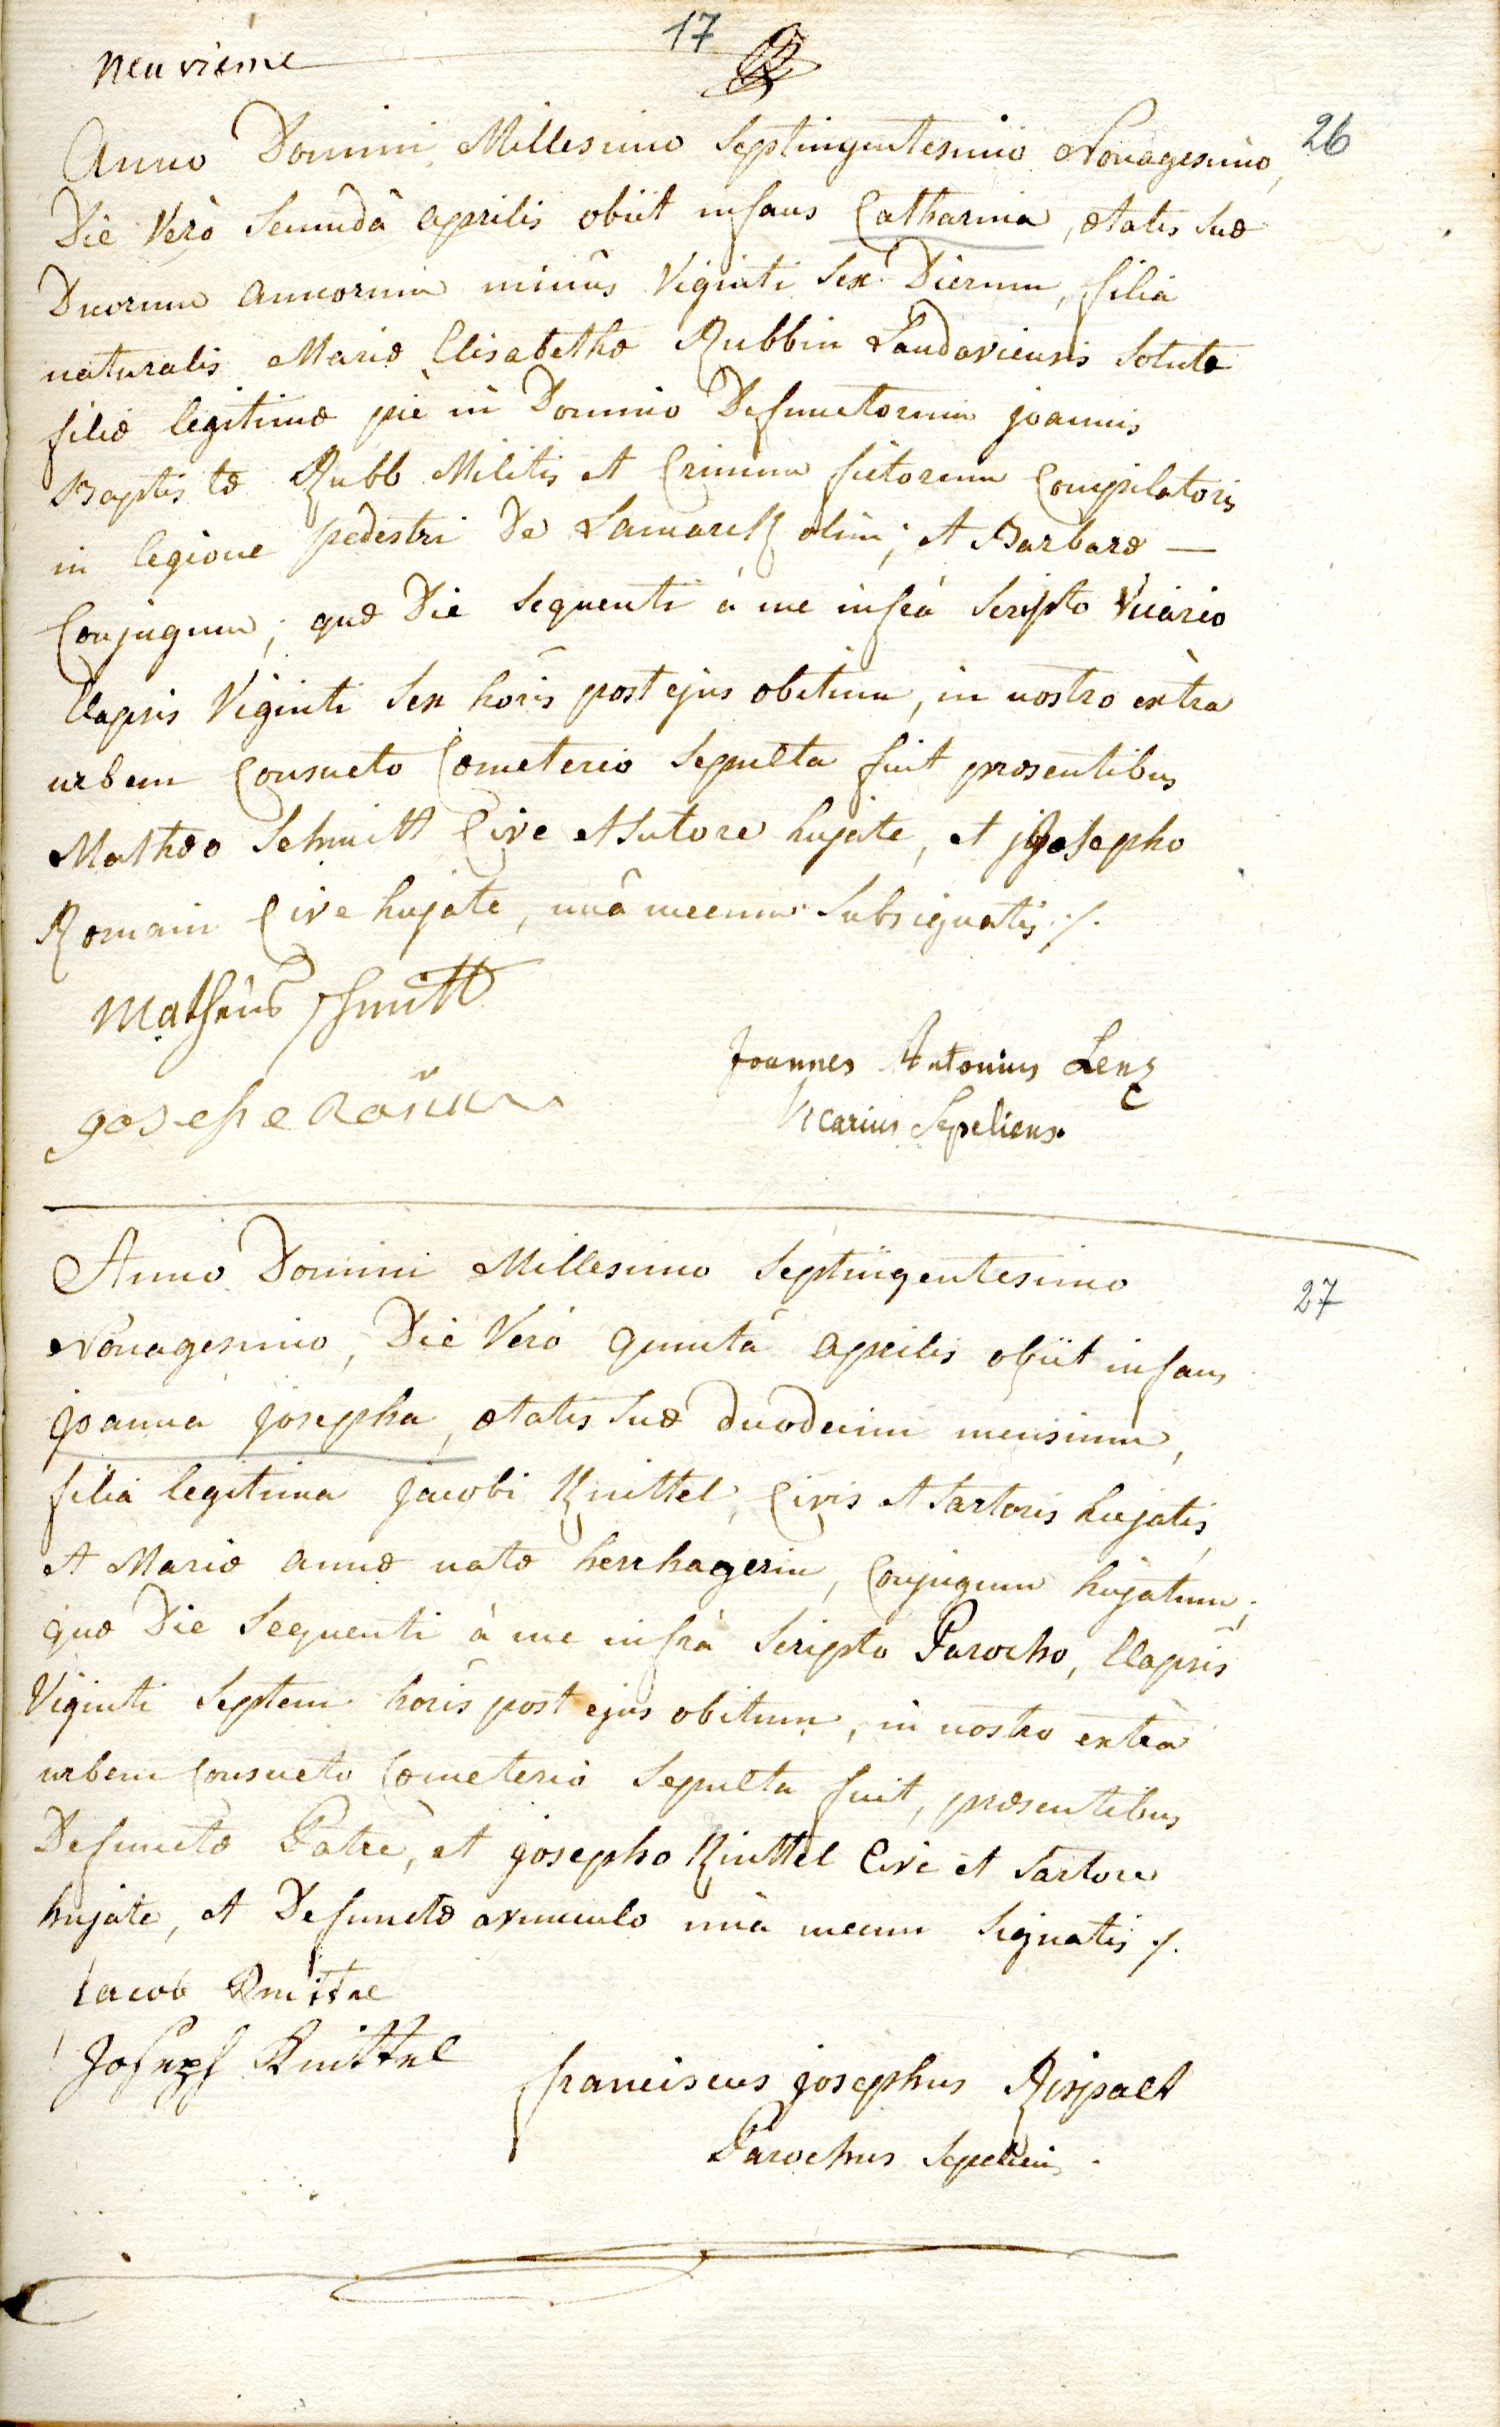 17
neuvieme
Anno Domini Millesimo Septingentesimo Nonagesimo, 26
Die Verò Secundâ aprilis obiit infans Catharina, ætatis suæ
Duorum annorum minus Viginti Sex Dierum, filia
naturalis Mariæ Elisabethæ Rubbin Landaviensis Solutæ
filiæ legitimæ piè in Domino Defunctorum joannis
Baptistæ Rubb Militis et Crinium fictorum Compilatoris
in legione pedestri De Lamarck olim; et Barbaræ —
Conjugum; quæ Die Sequenti à me infrà Scripto Vicario
Elapsis Viginti Sex horis post ejus obitum, in nostro extra
urbem Consueto Cœmeterio Sepulta fuit præsentibus
Mathæo Schmitt Cive et Sutore hujate, et josepho
Romain Cive hujate, unâ mecum Subsignatis ./.
Matheus Schmitt
Joannes Antonius Lenz
Vicarius Sepeliens.
Anno Domini Millesimo Septingentesimo
Nonagesimo, Die Verò quintâ aprilis obiit infans 27
joanna josepha, ætatis suæ duodecim mensium,
filia legitima jacobi Knittel, Civis et Sartoris hujatis,
et Mariæ annæ natæ herrhagerin, Conjugum hujatum;
quæ Die Sequenti à me infrà Scripto Parocho, Elapsis
Viginti Septem horis post ejus obitum, in nostro extrà
urbem Consueto Cœmeterio Sepulta fuit, præsentibus
Defunctæ Patre, et josepho Knittel Cive et Sartore
hujate, et Defunctæ avunculo unà mecum Signatis ./.
Jacob Knittel
Joseph Knittel
franciscus josephus Rispalt
Parochus Sepeliens.